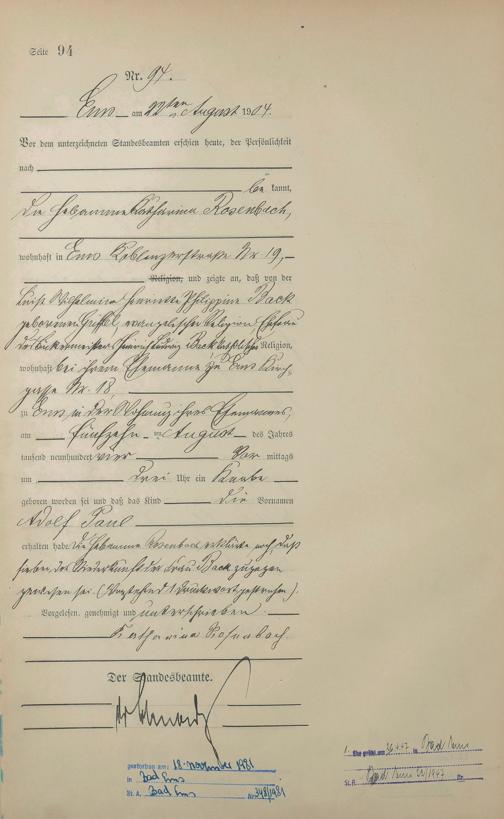 Seite 94
Nr. 94.
Ems am 22ten August 1904.
Vor dem unterzeichneten Standesbeamten erschien heute, der Persönlichkeit
nach
be kannt,
die Hebamme Katharina Rosenbach,
wohnhaft in Ems Koblenzerstraße Nr. 19,
Religion, und zeigte an, daß von der
Luise Wilhelmine Henriette Philippine Back
geborenen Griffel, evangelischer Religion Ehefrau
des Bäckermeisters Heinrich Back katholischer Religion,
wohnhaft bei ihrem Ehemanne zu Ems Kirch-
gasse Nr. 18
zu Ems in der Wohnung ihres Ehemannes,
am fünfzehn ten August des Jahres
tausend neunhundert vier Vor mittags
um drei Uhr ein Knabe
geboren worden sei und daß das Kind die Vornamen
Adolf Paul
erhalten habe. Die Hebamme Rosenbach erklärte noch, daß
sie bei der Niederkunft der Frau Back zugegen
gewesen sei. (Vorstehend 1 Druckwort gestrichen).
Vorgelesen, genehmigt und unterschrieben.
Katharina Rosenbach
Der Standesbeamte.
gestorben am: 18. November 1981
in Bad Ems
St. A. Bad Ems Nr. 348/1981
1. Ehe geschl. am in Bad Ems
St. A. Bad Ems /1947 Nr.